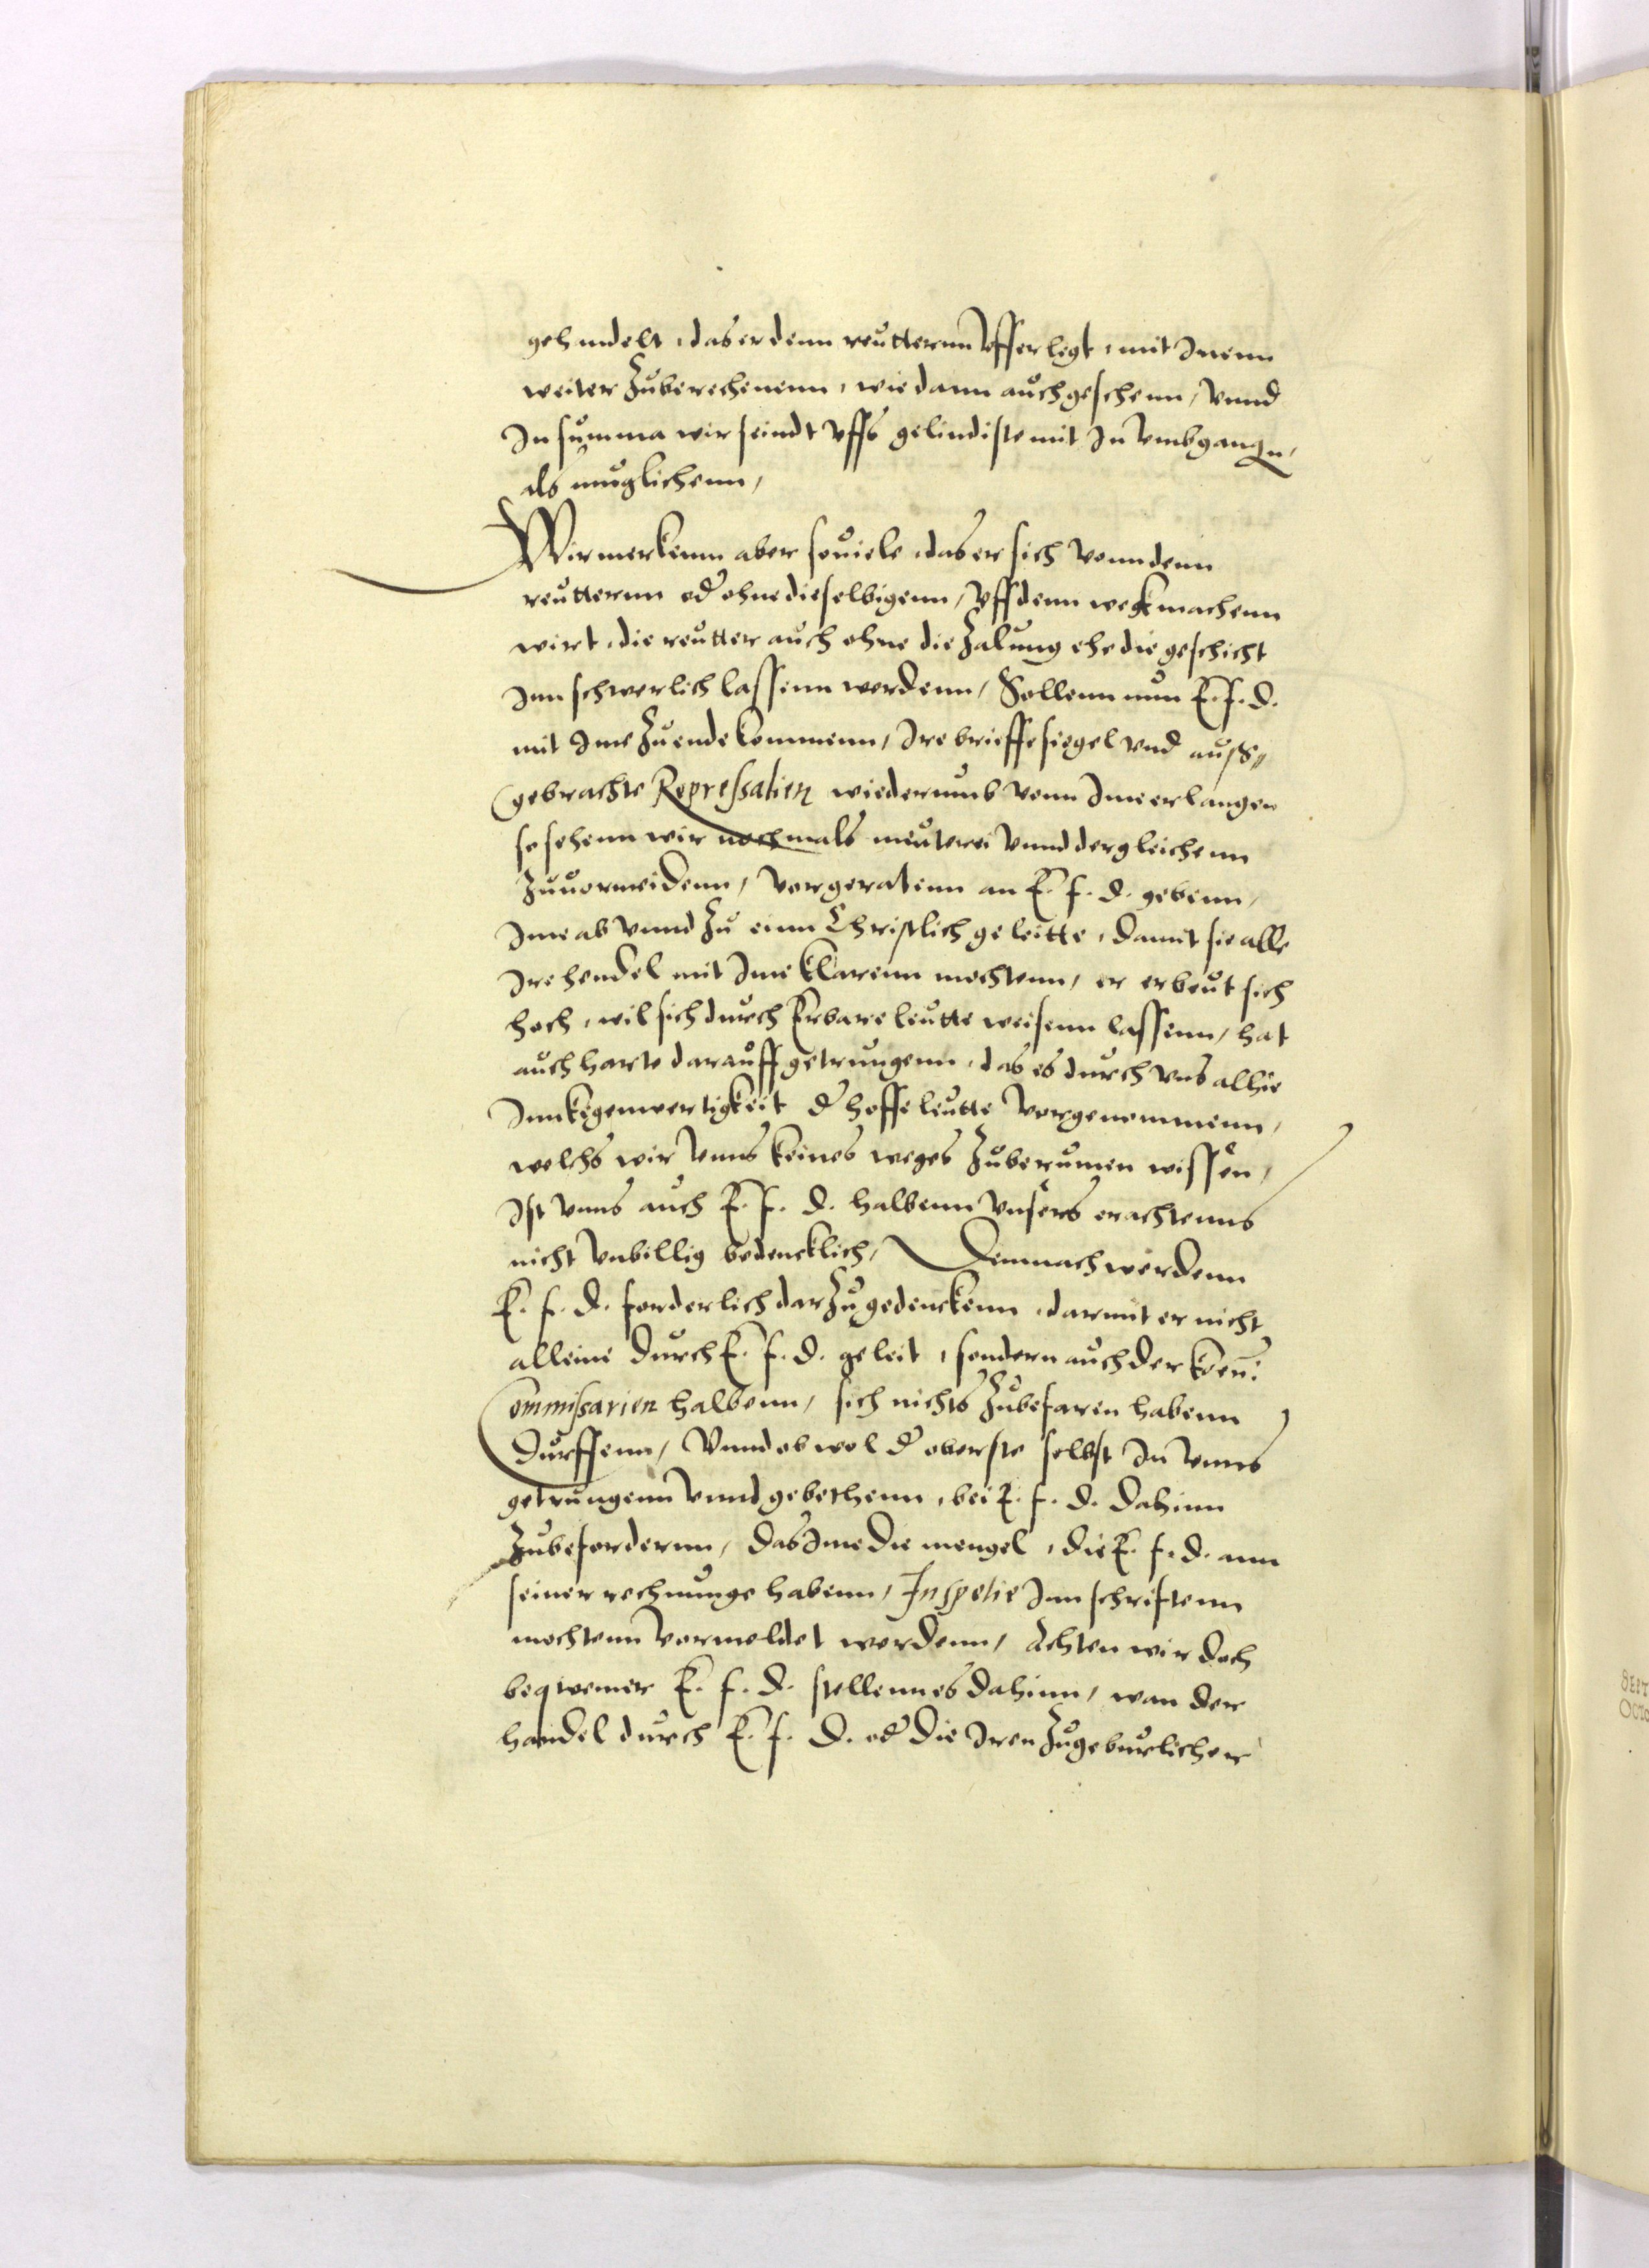 gehandelt, das er denn reutternn Vfferlegt, mit Inenn
weiter Zuberechenenn, wie dann auch geschenn, Vnnd
In summa wir seindt Vffs gelindiste mit In Vmbgangn,
als muglichenn,
Wir merkenn aber souiele, das er sich vonn denn
reutternn od ohne dieselbigenn, Vff denn wegk machenn
wirt, die reutter auch ohne die Zalung ehe die geschicht
Inn schwerlich lassenn werdenn, Sollenn nun E. f. d.
mit Ime Zu ende kommenn, Ire brieffe siegel vnd auß//
gebrachte Repressalien wiederumb vonn Ime erlangen
so sehenn wir nochmals meuterei Vnnd dergleichenn
Zuuormeidenn, Vor geratenn an E. f. d. gebenn,
Ime ab Vnnd Zu einn Christlich geleitte, damit sie alle
Ire hendel mit Ime klarenn mochtenn, er erbeut sich
hoch, wil sich durch Erbare leutte weisenn lassenn, hat
auch harte darauff getrungenn, das es durch vns alhie
Inn kegenwertigkeit d hoffeleutte Vorgenommenn,
welchs wir Vnns keines weges Zuberumen wissen,
Ist Vnns auch E. f. d. halbenn Vnsers erachtenns
nicht Vnbillig bedencklich, Demnach werdenn
E. f. d. forderlich darZu gedenckenn, darmit er nicht
alleine durch E. f. d. geleit, sondern auch der Koen:
Commissarien halbenn, sich nichts Zubefaren habenn
durffenn, Vnnd ob wol d oberste selbst In Vnns
getrungenn Vnnd gebethenn, bei E. f. d. dahinn
Zubefordernn, das Ime die mengel, die E. f. d. ann
seiner rechnunge habenn, Inspetie Inn schriftenn
mochtenn Vormeldet werdenn, Achten wir doch
beqwemer E. f. d. stellenn es dahinn, wan der
handel durch E. f. d. od die Iren Zugeburlicher